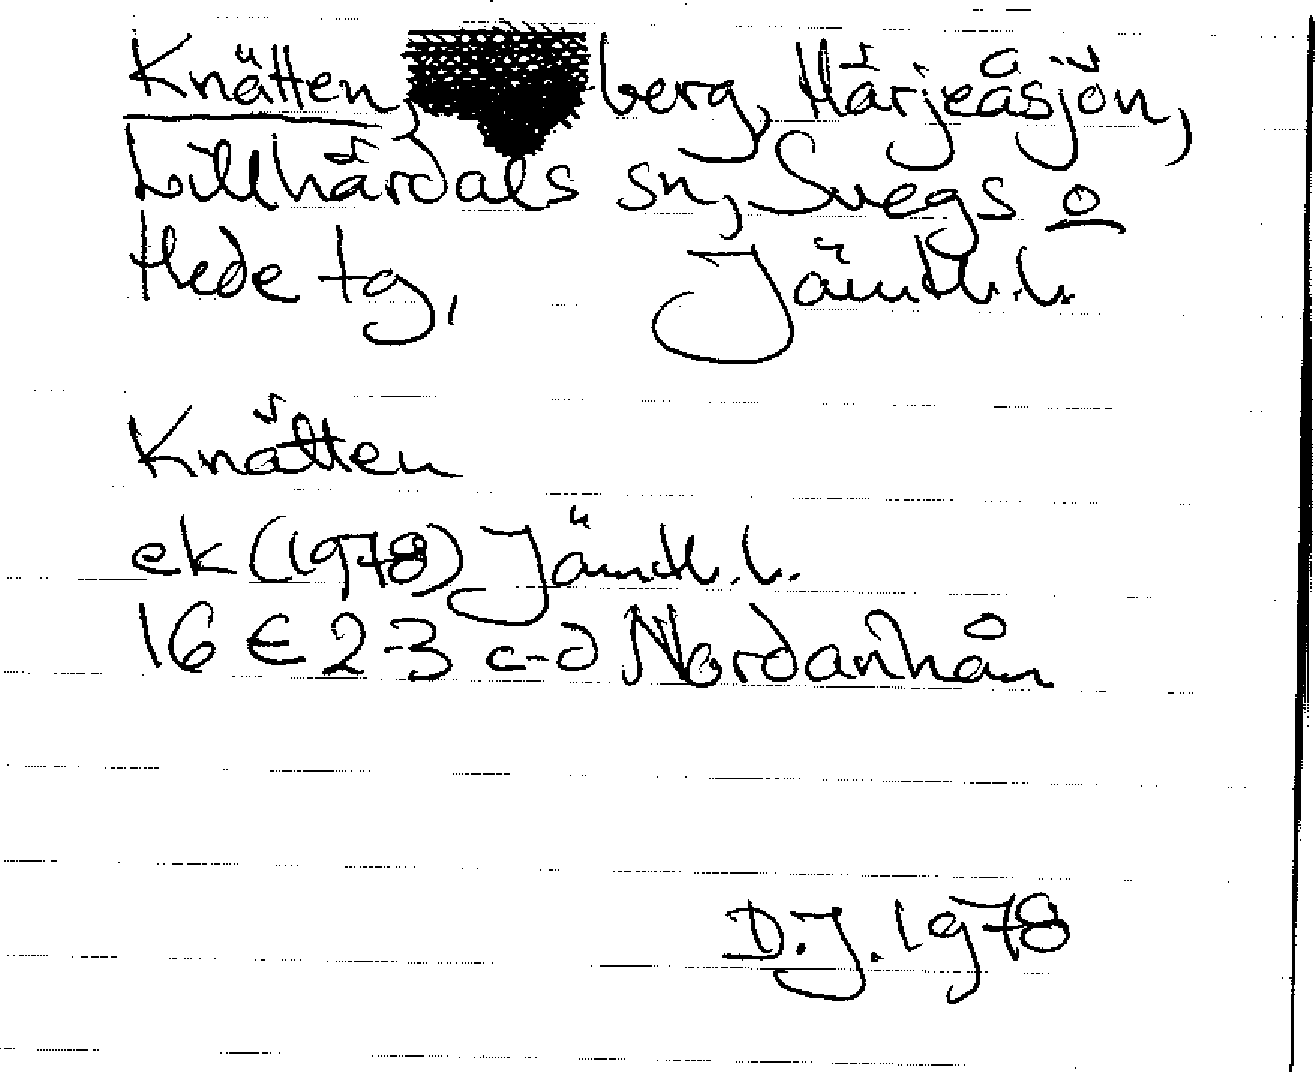 Knätten, berg, Härjeåsjön,
Lillhärdals sn, Svegs o
Hede tg, Jämtl.l.
Knätten
ek (1978) Jämtl.l.
16 E 2-3 c-d Nordanhån
D.J. 1978